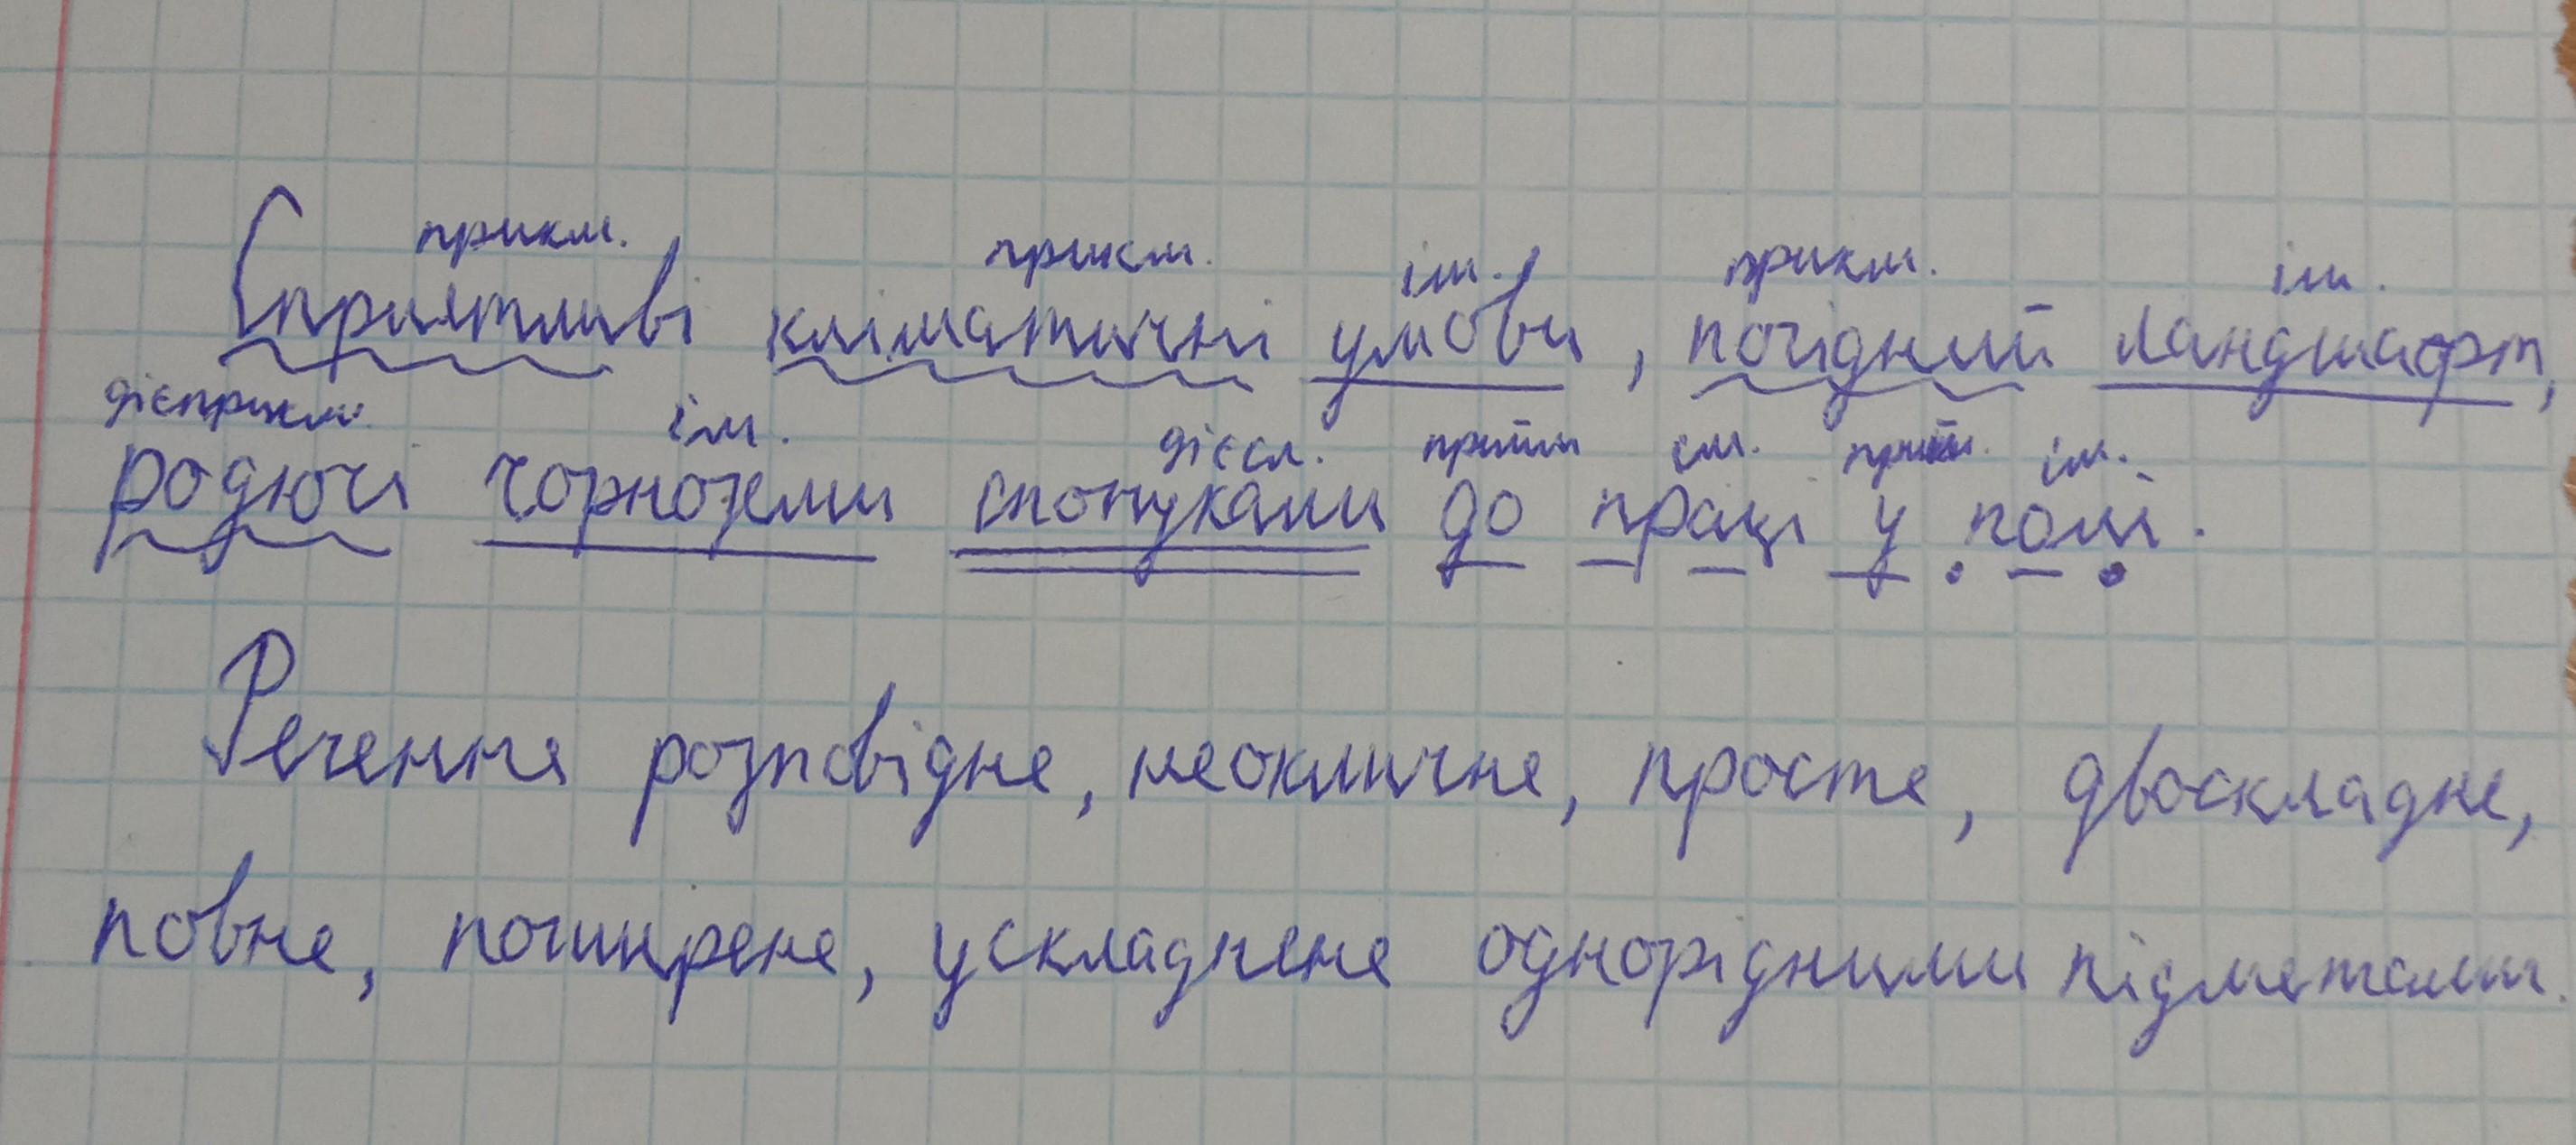 прикм. прикм. ім. прикм. ім.
Сприятливі кліматичні умови, погідний ландшафт,
дієприкм. ім. дієсл. прийм ім. прийм. ім.
родючі чорноземи спонукали до праці у полі.
Речення розповідне, неокличне, просте, двоскладне,
повне, поширене, ускладнене однорідними підметами.